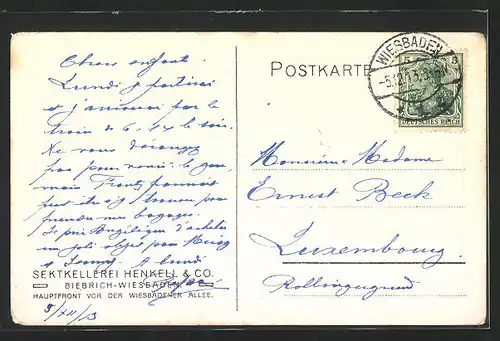 Chers enfants.
Lundi je partirai
et j'arriverai par le
train de 6.14 le soir.
Ne vous dérangez
pas pour venir à la gare,
mais Frantz pourrait
peut être s'y trouver pour
prendre mes bagages.
Je prie Angélique d'acheter
un joli objet pour
à lundi
SEKTKELLEREI HENKELL & CO.
BIEBRICH-WIESBADEN
HAUPTFRONT VOR DER WIESBADENER ALLEE.
5/XII/13
POSTKARTE
WIESBADEN
5
DEUTSCHES REICH
Monsieur Madame
Ernest Beck
Luxembourg
Rollingergrund